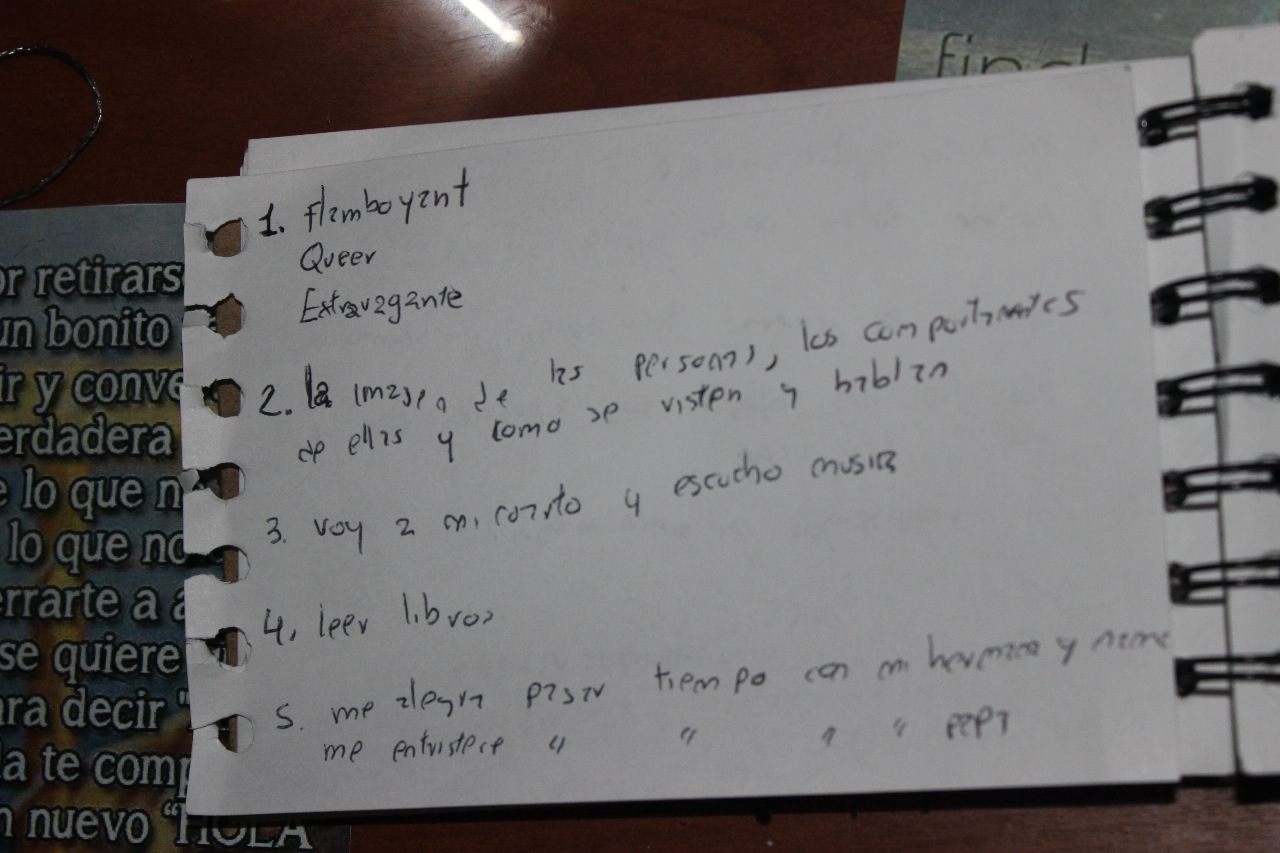 find
1. Flamboyant
Queer
Extravagante
2. la imagen de las personas, los comportamientos
de ellas y como se visten y hablan
3. voy a mi cuarto y escucho musica
4. leer libros
5. me alegra pasar tiempo con mi hermana y mama
me entristece " " " " papa
or retirars
un bonito
ir y conve
erdadera
e lo que n
lo que no
errarte a a
se quiere
ara decir "
la te comp
n nuevo "HOLA